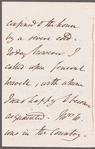 confined to the house
by a severe cold.
Today however I
called upon General
with whom
I was happy to become
acquainted. Mr
was in the Country.